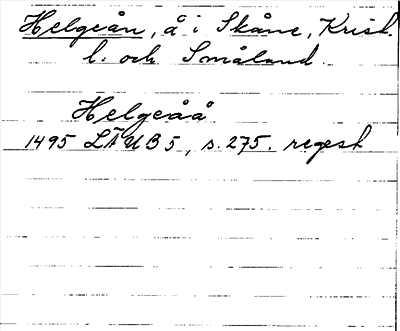 Helgeån, å i Skåne, Krist.
l. och Småland.
Helgeåå
1495 LÄUB 5, s. 275. regest